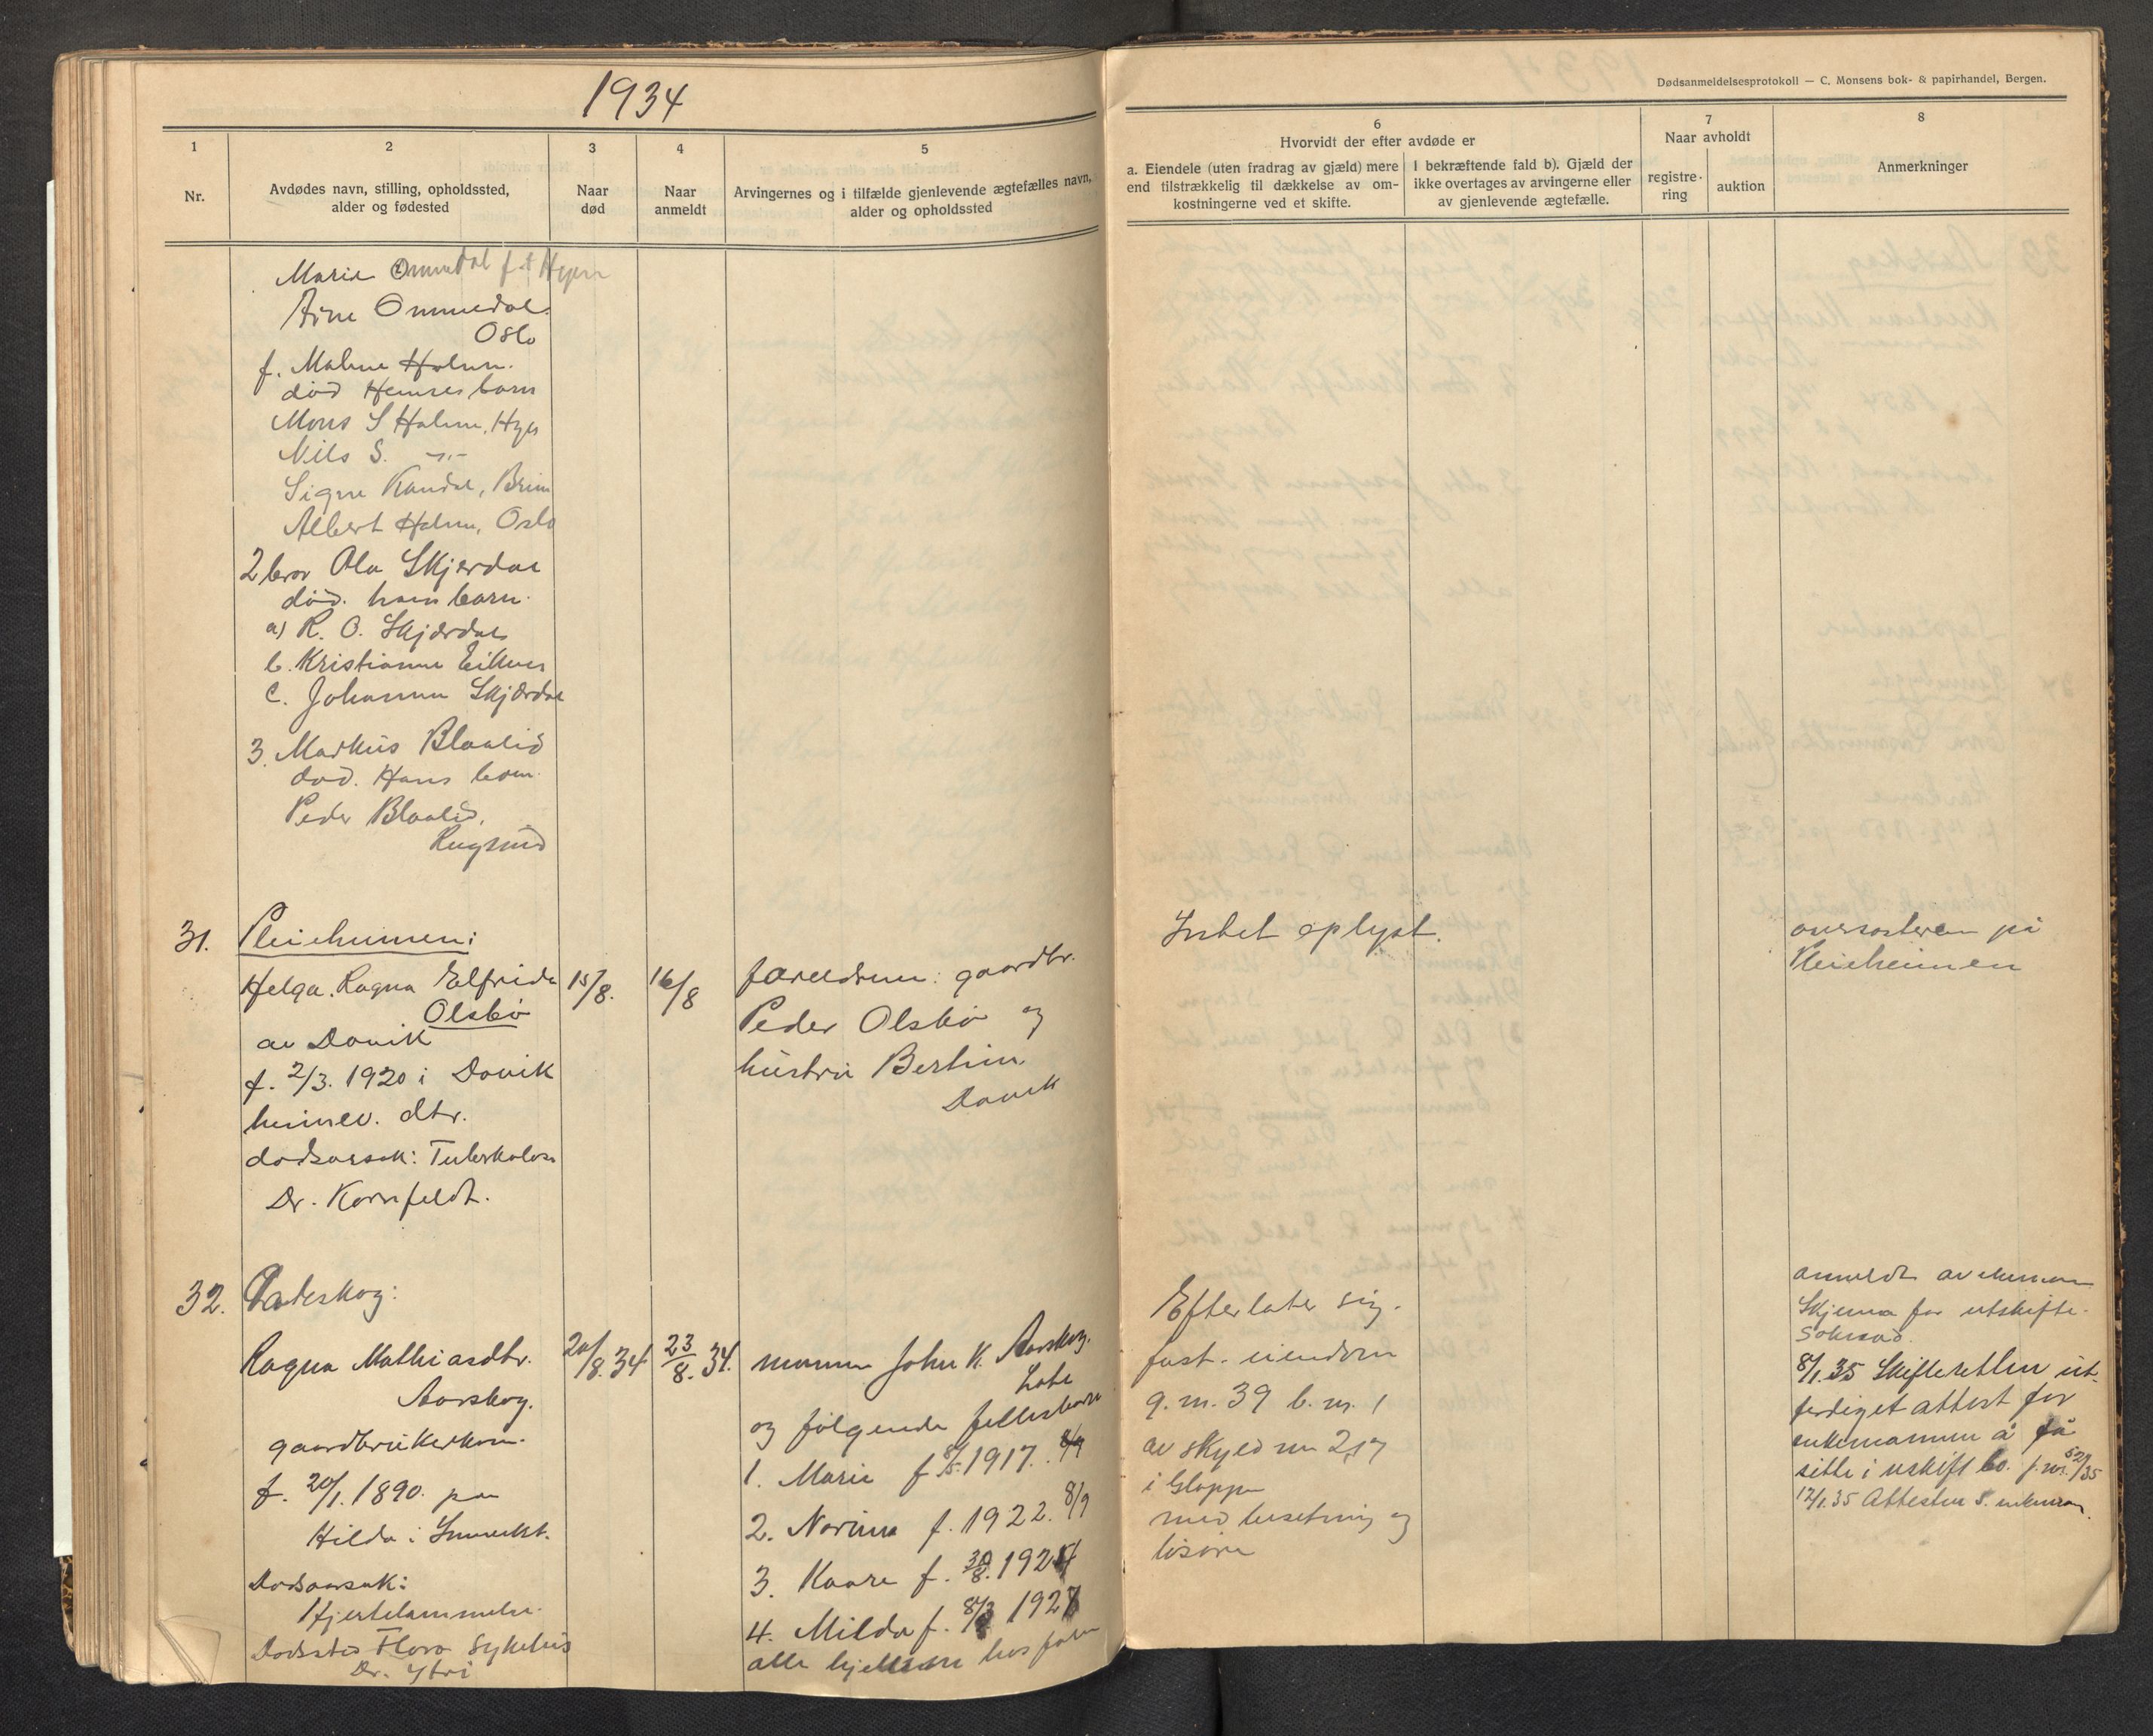 1934
Dødsanmeldelsesprotokoll — C. Monsens bok- & papirhandel, Bergen.
1
Nr.
2
Avdødes navn, stilling, opholdssted,
alder og fødested
3
Naar
død
4
Naar
anmeldt
5
Arvingernes og i tilfælde gjenlevende ægtefælles navn,
alder og opholdssted
6
Hvorvidt der efter avdøde er
a. Eiendele (uten fradrag av gjæld) mere
end tilstrækkelig til dækkelse av om-
kostningerne ved et skifte.
I bekræftende fald b). Gjæld der
ikke overtages av arvingerne eller
av gjenlevende ægtefælle.
7
Naar avholdt
registre-
ring
auktion
8
Anmerkninger
Marie Ommedal
Arne Ommedal
Oslo
f. Malene Holme.
død Hennes barn
Mons S Holme, Hyen
Nils S. -"-
Signe Kandal, Brim
Albert Holme, Oslo
2 bror Ola Skjerdal
død. hans barn.
a) R. O. Skjærdal
b. Kristianne Eikenes
c. Johanna Skjærdal
3. Markus Blaalid
død. Hans barn.
Peder Blaalid,
Rugsund
31.
Pleiehiemmen:
Helga. Ragna Elfrida
Olsbø
av Davik
f. 2/3. 1920 i Davik
heimev. dtr.
dødsarsak: Tuberkulose
Dr. Kornfeldt.
15/8.
16/8
foreldrene: gaardbr.
Peder Olsbø og
hustru Bertine
Davik
Intet oplyst.
oversøsteren på
Pleieheimen
32.
Aarskog:
Ragna Mathiasdtr.
Aarskog.
gaardbrukerkone.
f. 20/1. 1890. paa
Hilde i Innvikt.
Dødsarsak:
Hjertelammelse.
Dødssted Florø Sykehus
Dr. Ytri
20/8. 34
23/8. 34.
mannen John K. Aarskog.
Lote
og følgende fellesbarn
1. Marie f 8/5. 1917. 8/9
2. Norima f. 1922. 8/9
3. Kaare f. 30/8. 1924
4. Milda f. 8/3 1927
alle hjemme hos faren
Efterlater sig.
fast. eiendom
g. nr. 39 b. nr. 1
av skyld mr 2,17
i Gloppen
med besetning og
løsøre
anmeldt av mannen
Skjema for uskifte.
Søknad.
8/1.35 Skifteretten ut-
ferdiget attest for
enkemannen å få
sitte i uskift bo. j.nr. 529/35
12/1.35 Attesten s. enkeman.